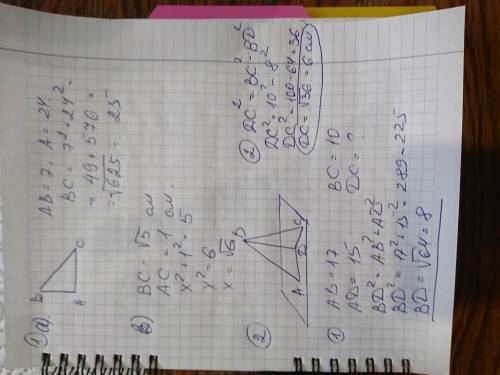 ① a).
B
A
C
AB = 7, A = 24
BC = 7² + 24² =
= 49 + 576 =
= √625 = 25
в)
BC = √5 см
AC = 1 см.
x² + 1² = 5
x² = 6
x = √6
②
B
A
D
C
① AB = 17 BC = 10
AD = 15 DC = ?
BD² = AB² - AD²
BD² = 17² - 15² = 289 - 225
BD = √64 = 8
② DC² = BC² - BD²
DC² = 10² - 8²
DC² = 100 - 64 = 36
DC = √36 = 6 см